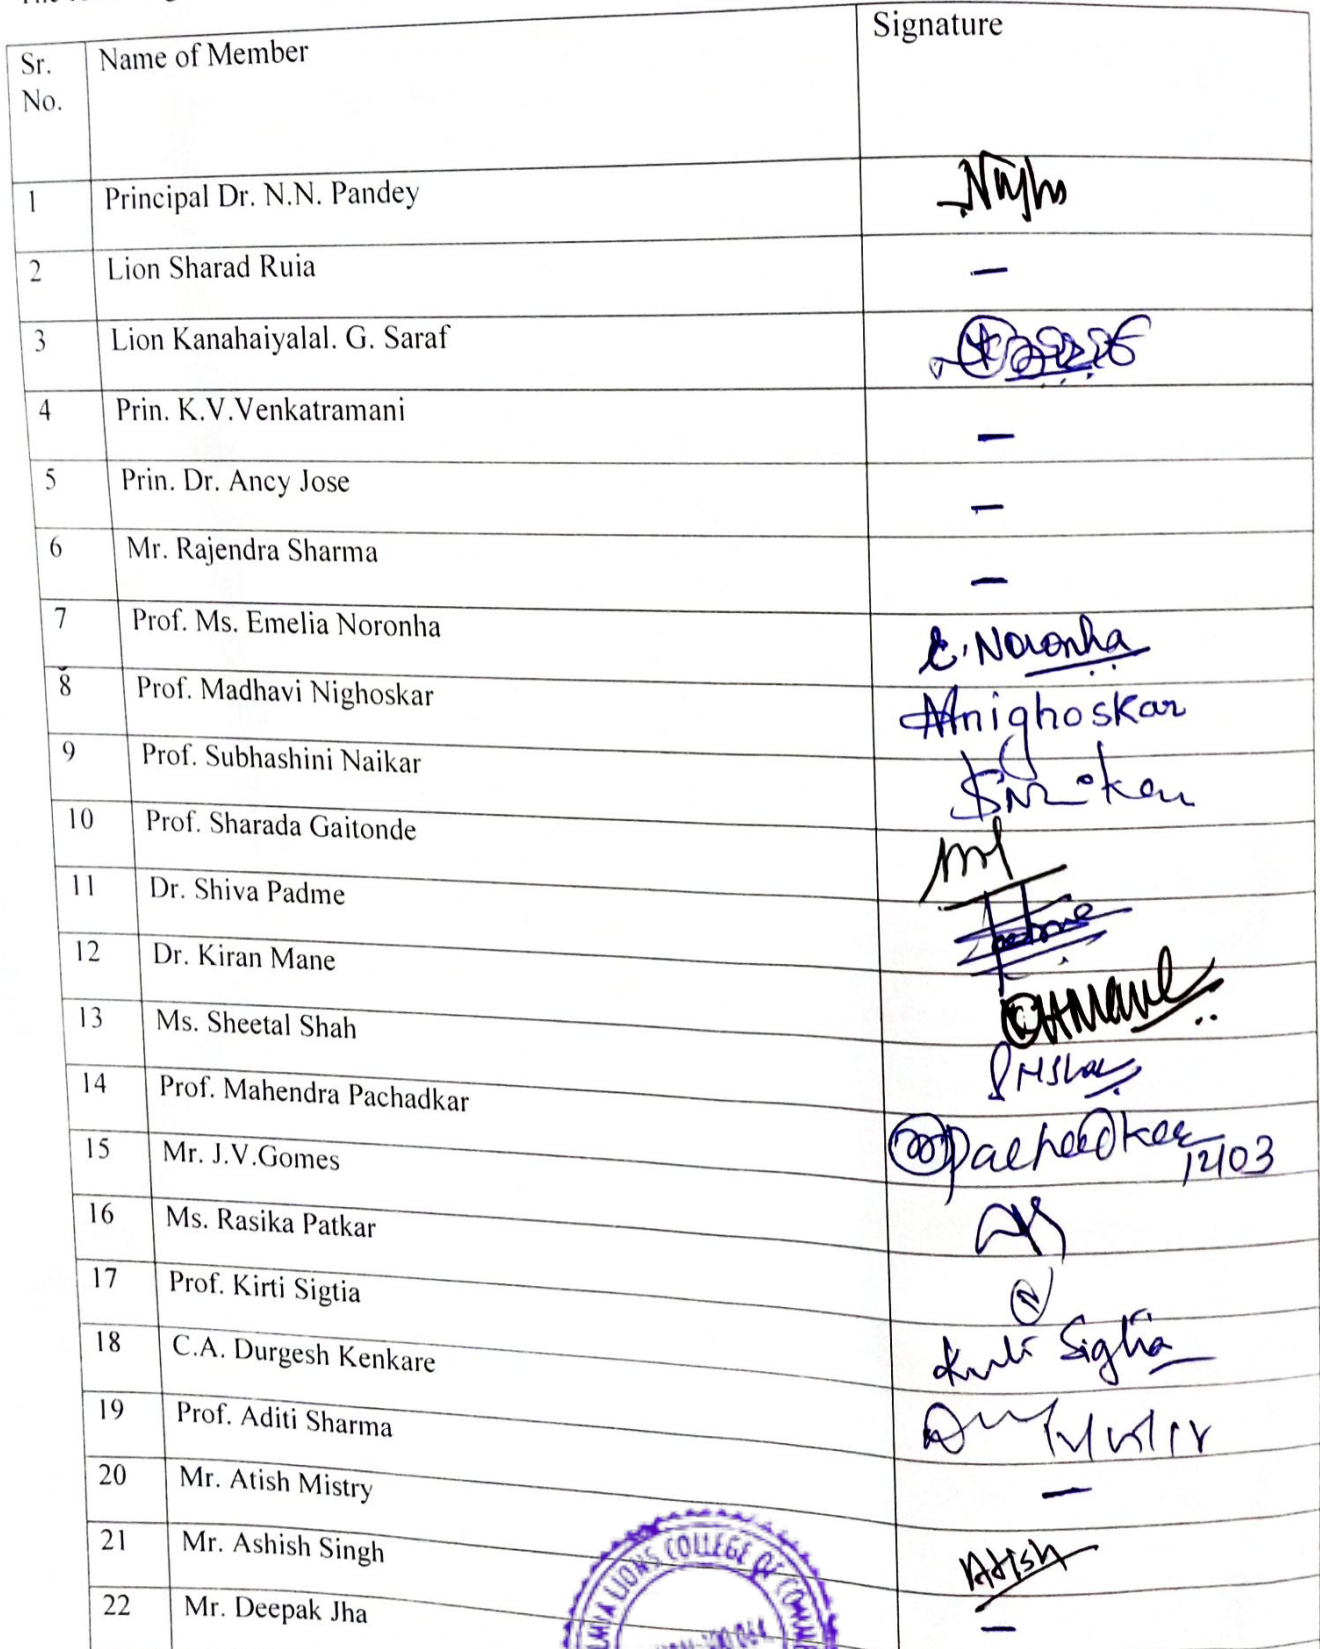 Sr. No. Name of Member Signature
1 Principal Dr. N.N. Pandey
2 Lion Sharad Ruia —
3 Lion Kanahaiyalal. G. Saraf
4 Prin. K.V.Venkatramani —
5 Prin. Dr. Ancy Jose —
6 Mr. Rajendra Sharma —
7 Prof. Ms. Emelia Noronha E. Noronha
8 Prof. Madhavi Nighoskar Mnighoskar
9 Prof. Subhashini Naikar
10 Prof. Sharada Gaitonde
11 Dr. Shiva Padme
12 Dr. Kiran Mane
13 Ms. Sheetal Shah
14 Prof. Mahendra Pachadkar
15 Mr. J.V.Gomes 12/03
16 Ms. Rasika Patkar
17 Prof. Kirti Sigtia
18 C.A. Durgesh Kenkare Kirti Sigtia
19 Prof. Aditi Sharma
20 Mr. Atish Mistry —
21 Mr. Ashish Singh Atish
22 Mr. Deepak Jha —
LIONS COLLEGE OF